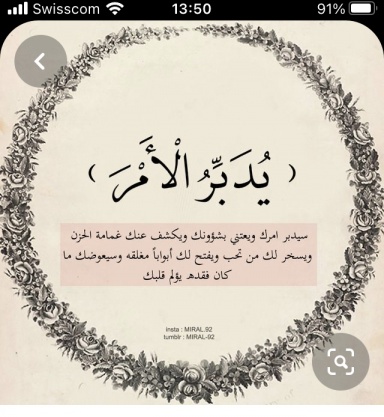 Swisscom 13:50 91%
﴿ يُدَبِّرُ الْأَمْرَ ﴾
سيدبر امرك ويعتني بشؤونك ويكشف عنك غمامة الحزن
ويسخر لك من تحب ويفتح لك أبواباً مغلقه وسيعوضك ما
كان فقده يؤلم قلبك
insta : MIRAL.92
tumblr : MIRAL-92